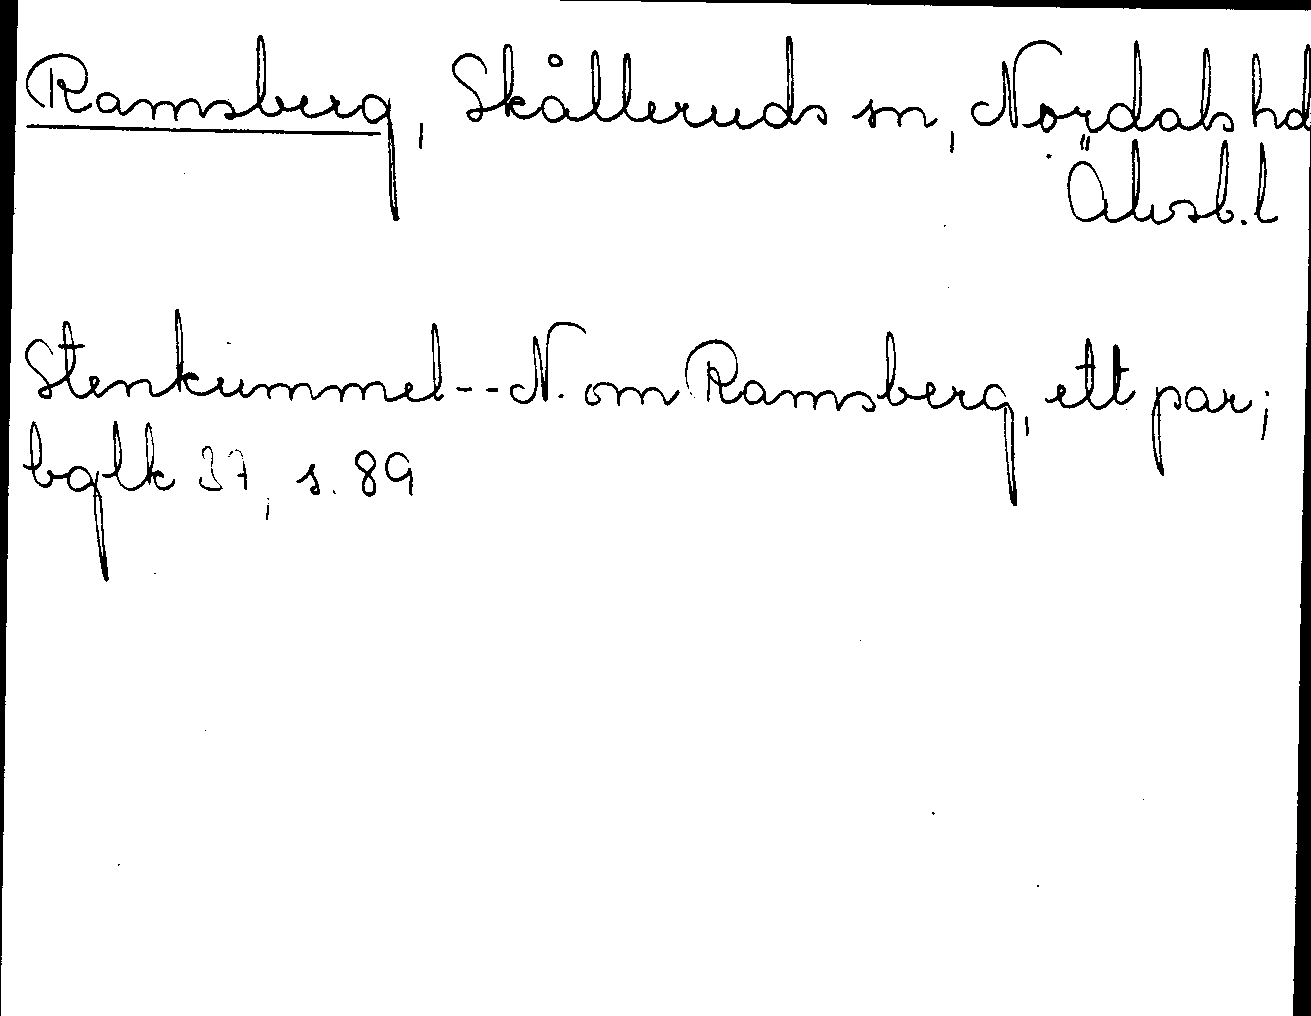 Ramsberg, Skålleruds sn, Nordals hd
Älvsb.l
Stenkummel--N. om Ramsberg, ett par;
bglk 37, s. 89